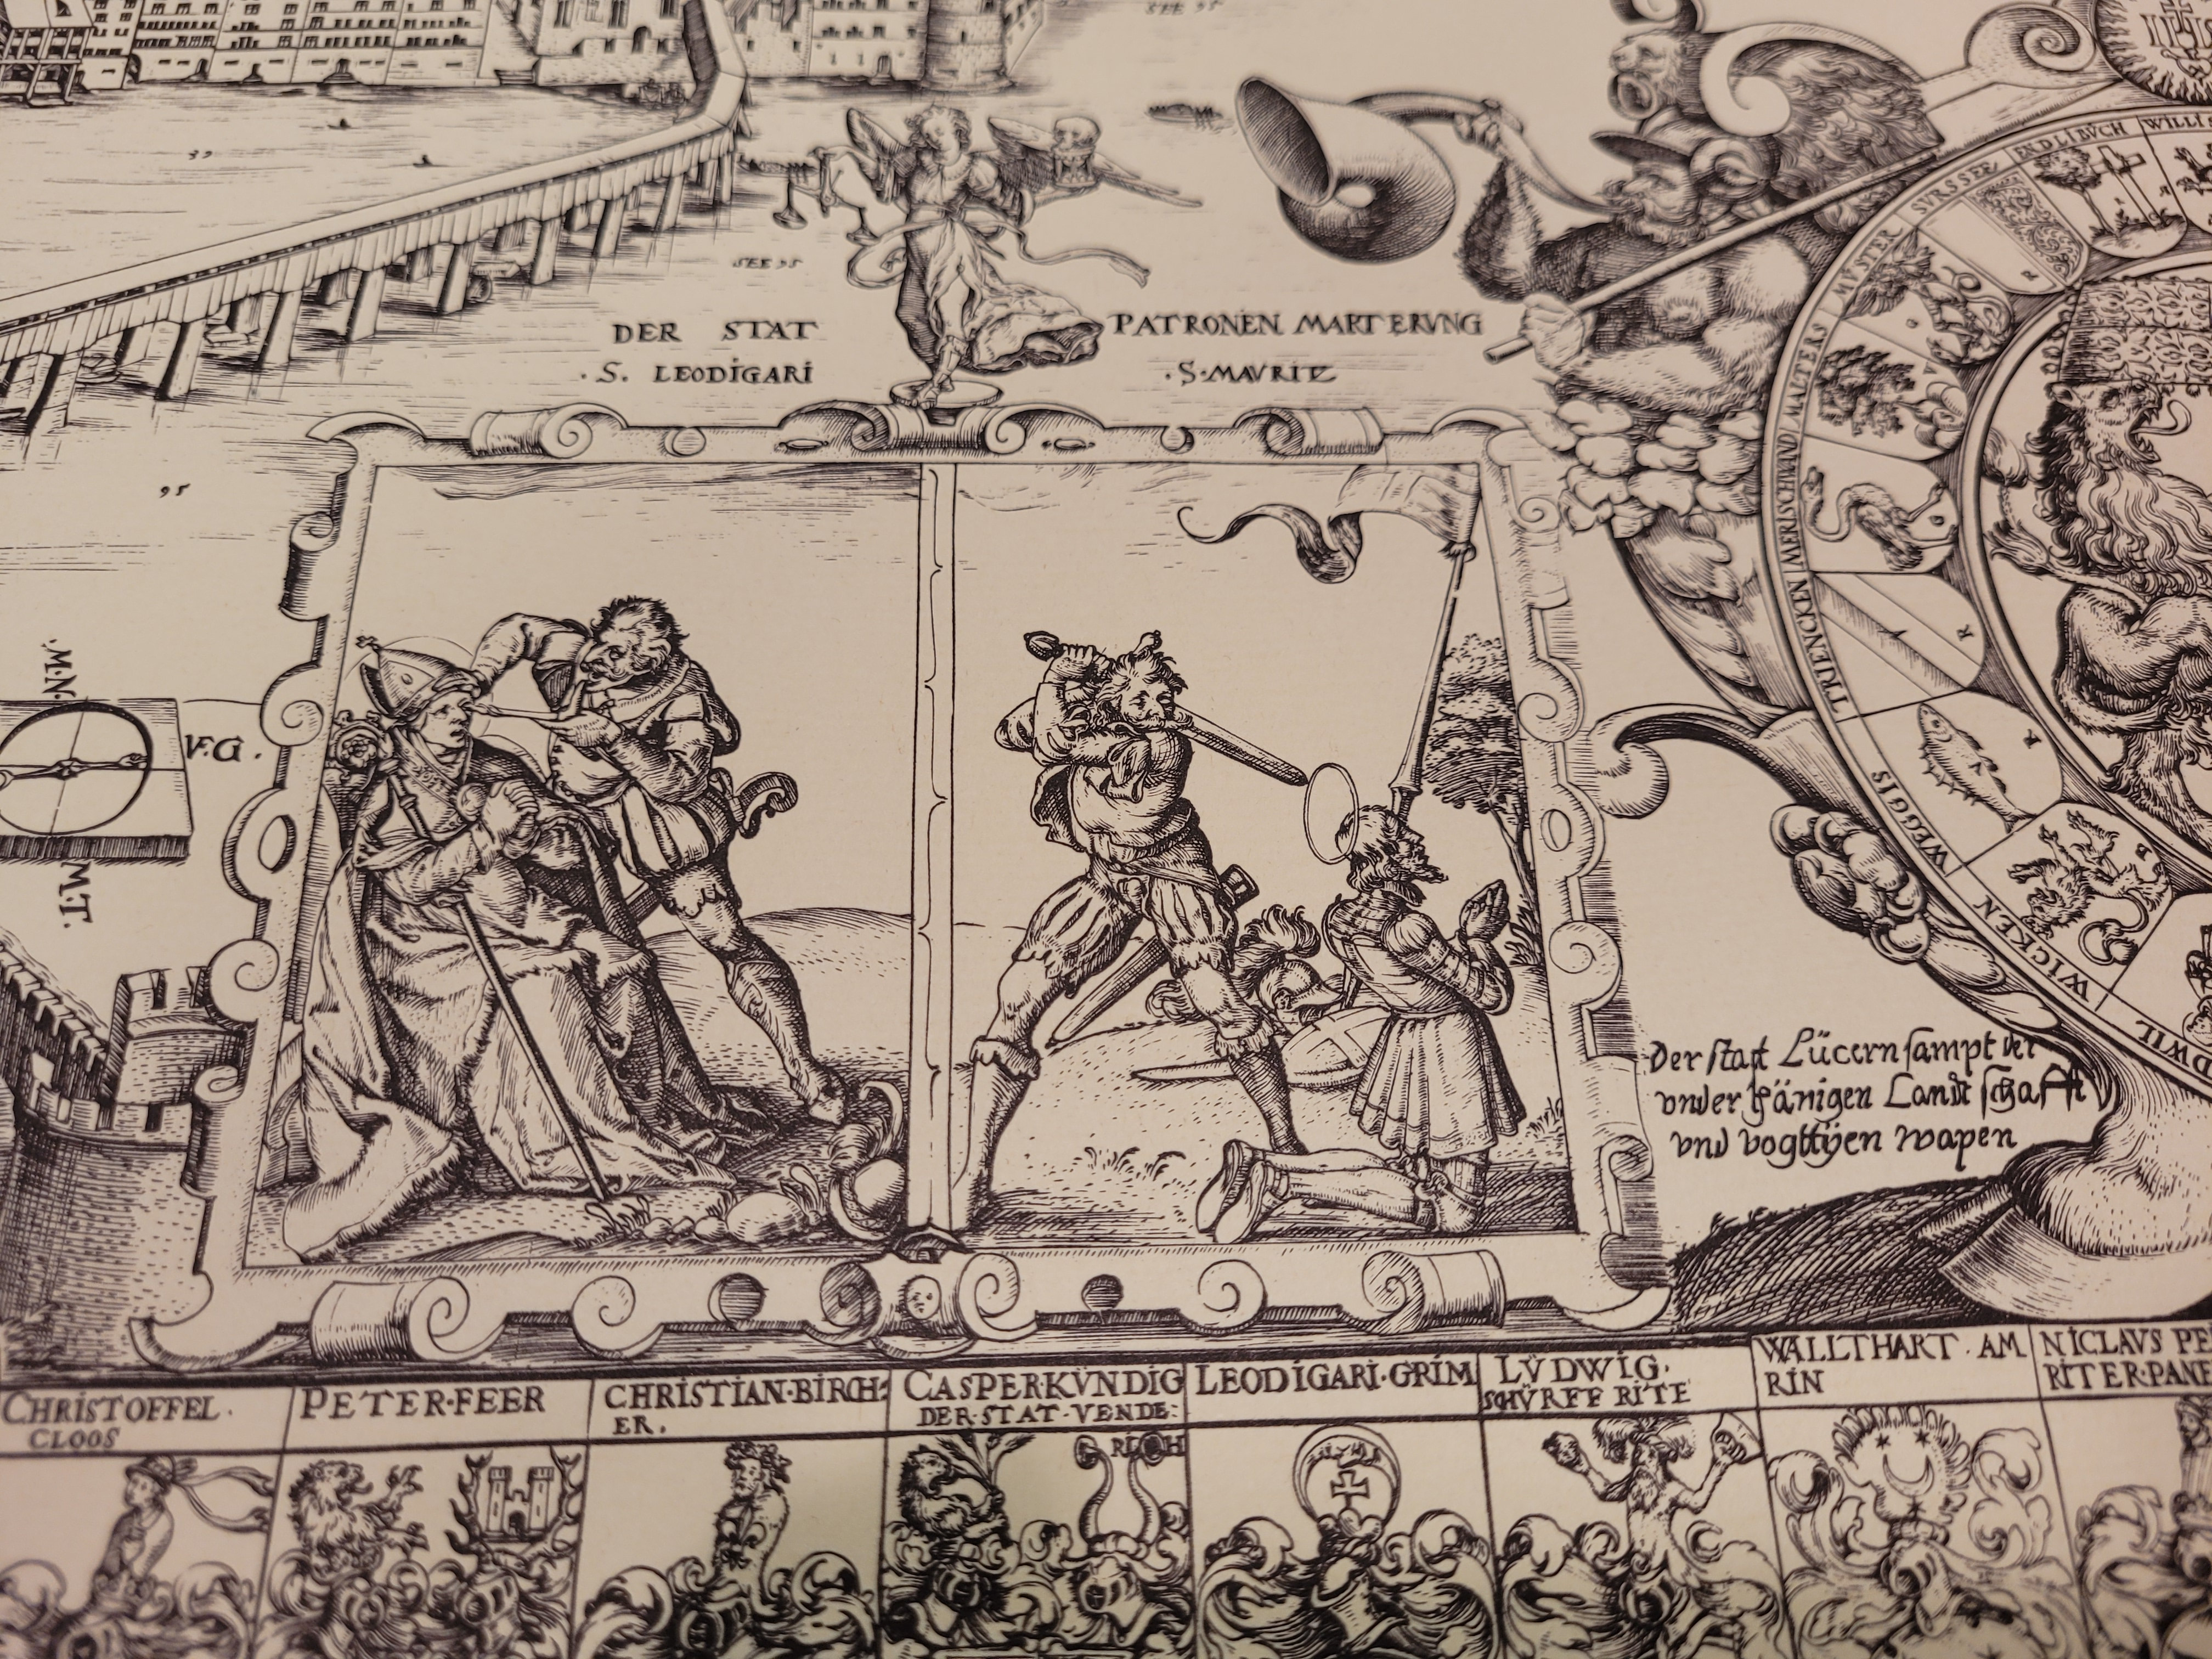 SEE 95
39
SEE 95
DER STAT PATRONEN MARTERVNG
. S. LEODIGARI . S. MAVRITZ
95
.M.N.
V.G.
M.T.
ENDLIBVCH
SVRSSEE
MVSTER
MALTERS
MERISCHWAND
TRIENCKEN
WEGGIS
WICKEN
Der statt Lücern sampt der
vnder thänigen Landtschafft
vnd vogttÿen wapen
CHRISTOFFEL.
CLOOS
PETER·FEER
CHRISTIAN·BIRCH:
ER.
CASPER·KVNDIG
DER·STAT·VENDE:
RICH
LEODIGARI·GRIM
LVDWIG.
SCHVRFF RITE
WALLTHART·AM
RIN
NICLAVS
RITER·PANE